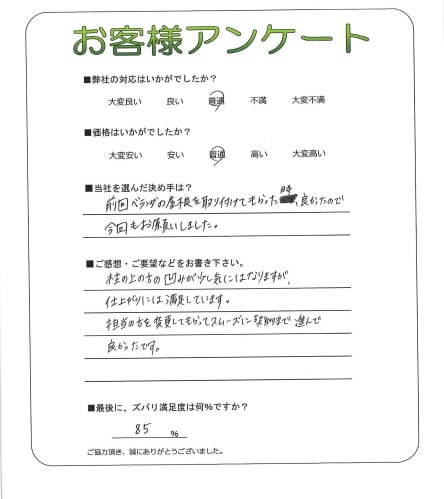 お客様アンケート
■弊社の対応はいかがでしたか？
大変良い 良い 普通 不満 大変不満
■価格はいかがでしたか？
大変安い 安い 普通 高い 大変高い
■当社を選んだ決め手は？
前回ベランダの屋根を取り付けてもらった時、良かったので
今回もお願いしました。
■ご感想・ご要望などをお書き下さい。
柱の上の方の凹みが少し気にはなりますが、
仕上がりには満足しています。
担当の方を変更してもらってスムーズに契約まで進んで
良かったです。
■最後に、ズバリ満足度は何％ですか？
85 %
ご協力頂き、誠にありがとうございました。